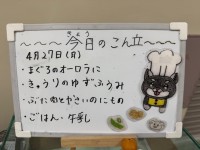 ～～～今日のこん立～～～
きょう
4月27日(月)
・まぐろのオーロラに
・きゅうりのゆずふうみ
・ぶた肉とやさいのにもの
・ごはん・牛乳